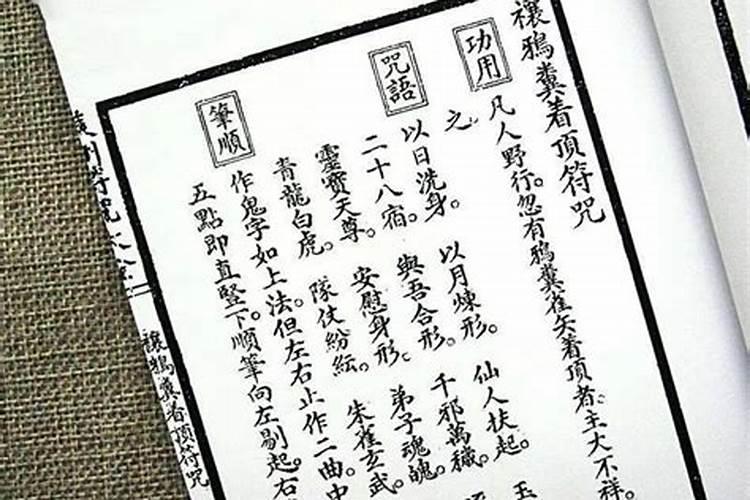 禳鴉糞着頂符咒
功用
凡人野行。忽有鴉糞雀矢着頂者。主大不祥。
之
咒語
以日洗身。以月煉形。仙人扶起。玉
二十八宿。與吾合形。千邪萬穢。
靈寶天尊。安慰身形。弟子魂魄。
青龍白虎。隊仗紛紜。朱雀玄武。
筆順
作鬼字如上法。但左右止作二曲中
五點即直豎下順筆向左剔起。右
禳鴉糞着頂符咒